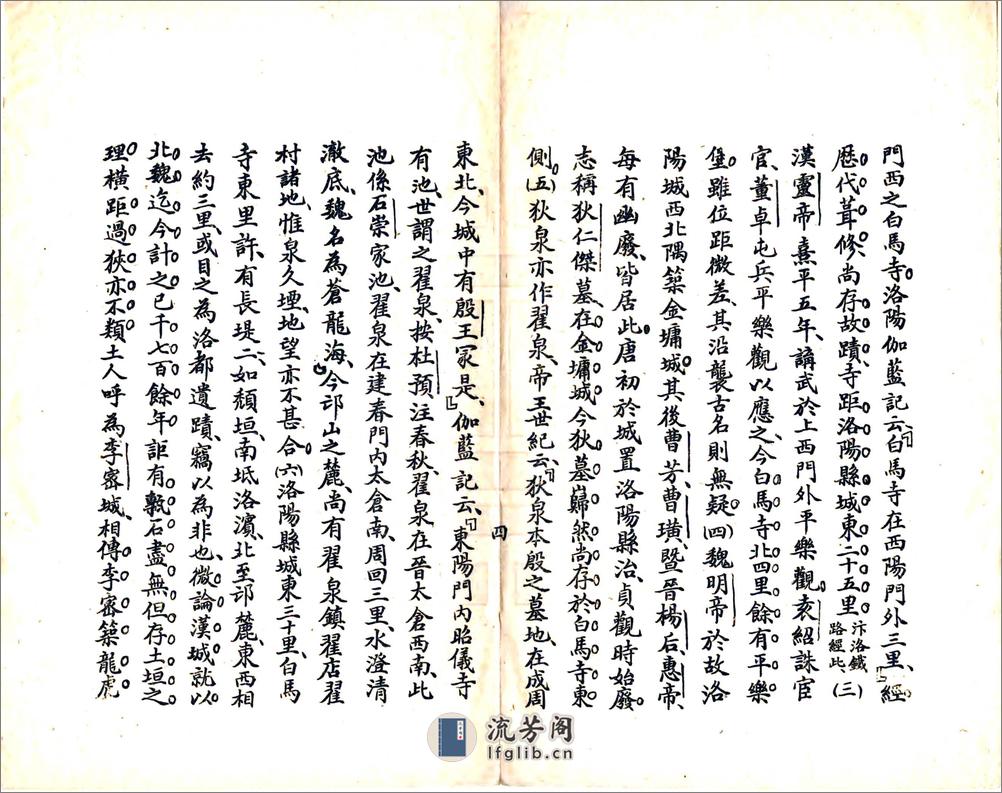 門西之白馬寺。洛陽伽藍記云、「白馬寺在西陽門外三里、」經
歷代葺修。尚存故蹟。寺距洛陽縣城東二十五里汴洛鐵路經此、(三)
漢靈帝熹平五年、講武於上西門外平樂觀。袁紹誅宦
官、董卓屯兵平樂觀以應之、今白馬寺北四里餘有平樂
堡。雖位距微差、其沿襲古名則無疑。(四)魏明帝於故洛
陽城西北隅築金墉城。其後曹芳、曹璜、暨晉楊后惠帝、
每有幽廢、皆居此。唐初於城置洛陽縣治、貞觀時始廢。
志稱狄仁傑墓、在金墉城今狄墓巋然尚存於白馬寺東
側。(五)狄泉亦作翟泉、帝王世紀云、「狄泉本殷之墓地、在成周
東北、今城中有殷王冢是、」伽藍記云、「東陽門內昭儀寺
有池、世謂之翟泉、按杜預注春秋、翟泉在晉太倉西南、此
池係石崇家池、翟泉在建春門內太倉南、周回三里、水澄清
澈底、魏名為蒼龍海、」今邙山之麓、尚有翟泉鎮翟店翟
村諸地、惟泉久堙地望亦不甚合。(六)洛陽縣城東三十里、白馬
寺東里許、有長堤二、如頹垣、南坻洛濱、北至邙麓、東西相
去約三里、或目之為洛都遺蹟、竊以為非也、微論漢城、就以
北魏迄今計之已千七百餘年詎有甎石盡無但存土垣之
理橫距過狹亦不類土人呼為李密城、相傳李密築龍虎
四
流芳阁
lfglib.cn